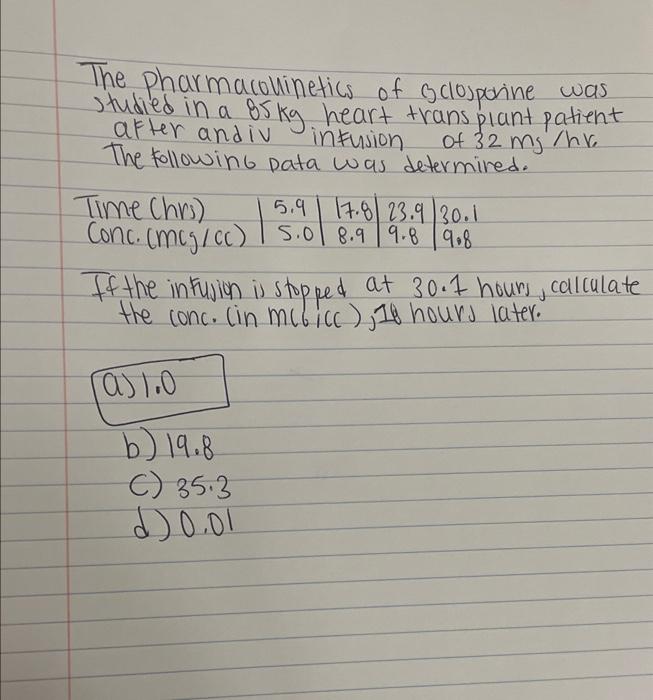 The pharmacokinetics of cyclosporine was
studied in a 85 kg heart transplant patient
after and iv infusion of 32 mg /hr.
The following Data was determined.
Time (hrs) | 5.9 | 17.8 | 23.9 | 30.1
Conc. (mcg/cc) | 5.0 | 8.9 | 9.8 | 9.8
If the infusion is stopped at 30.1 hours, calculate
the conc. (in mcG/cc), 18 hours later.
a) 1.0
b) 19.8
c) 35.3
d) 0.01